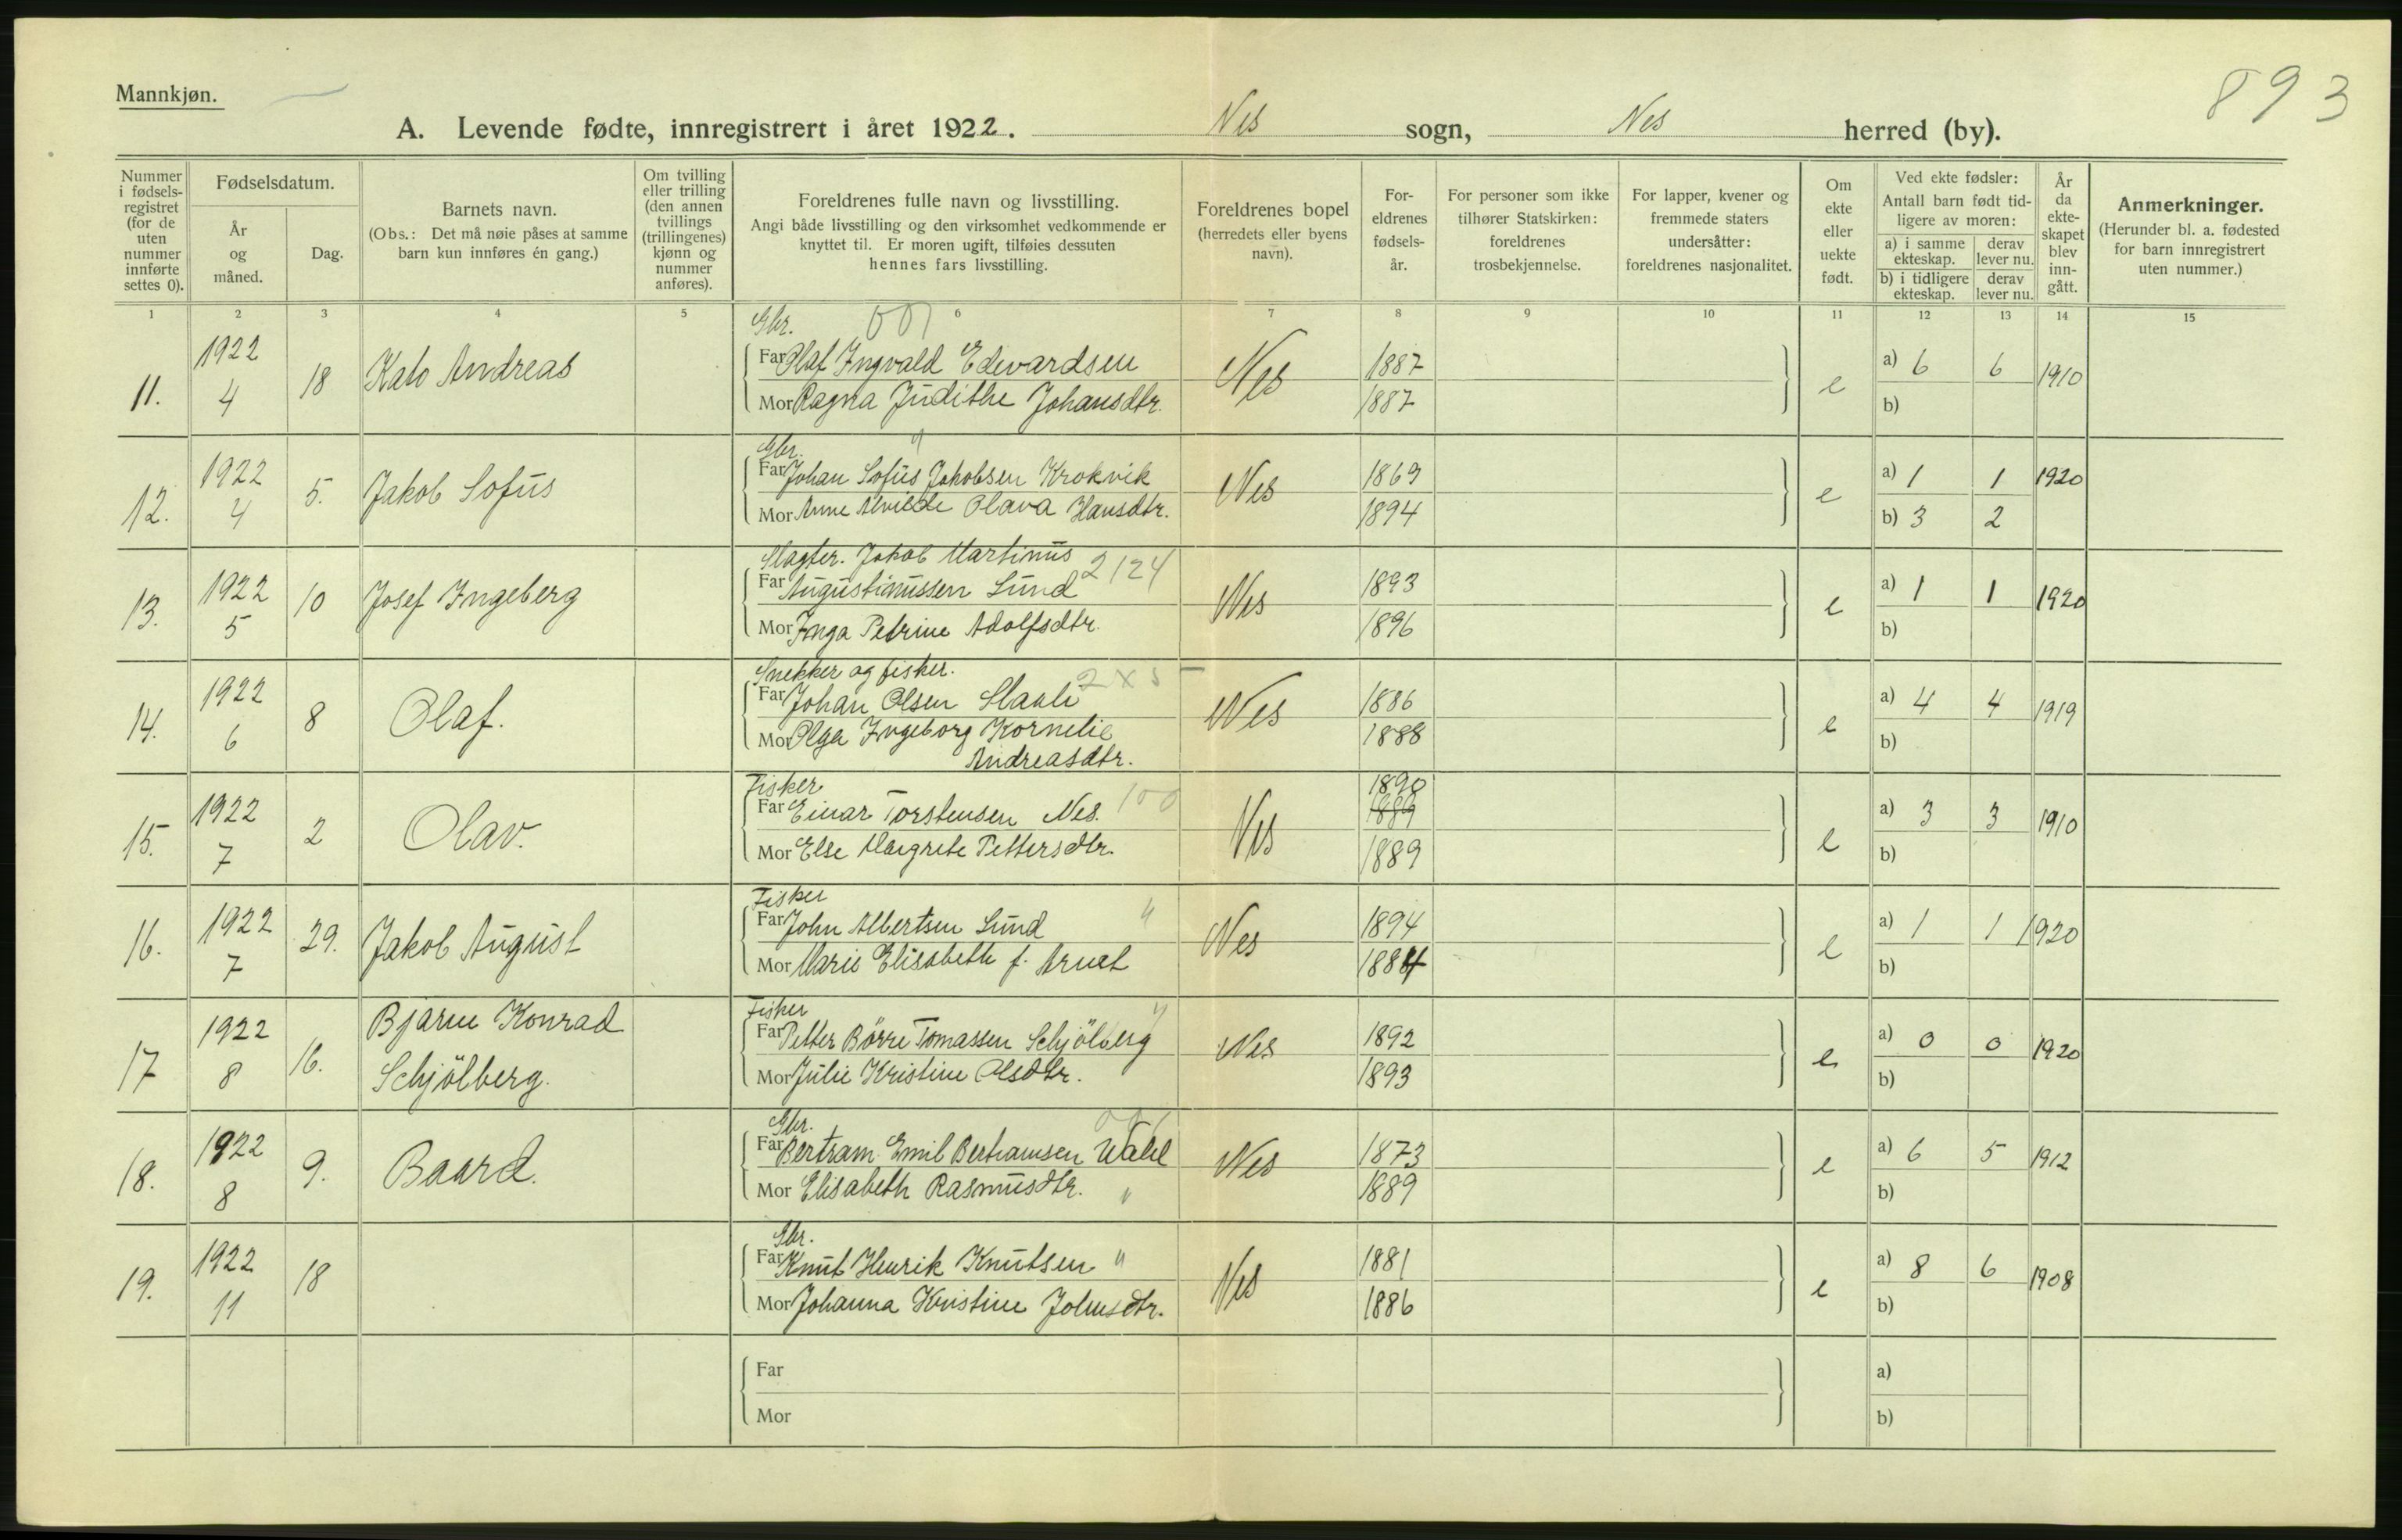 Mannkjøn.
893
A. Levende fødte, innregistrert i året 1922. Nes sogn, Nes herred (by).
Nummer i fødsels-registret (for de uten nummer innførte settes 0).
Fødselsdatum.
År og måned.
Dag.
Barnets navn.
(Obs.: Det må nøie påses at samme barn kun innføres én gang.)
Om tvilling eller trilling (den annen tvillings (trillingenes) kjønn og nummer anføres).
Foreldrenes fulle navn og livsstilling.
Angi både livsstilling og den virksomhet vedkommende er knyttet til. Er moren ugift, tilføies dessuten hennes fars livsstilling.
Foreldrenes bopel (herredets eller byens navn).
For-eldrenes fødsels-år.
For personer som ikke tilhører Statskirken: foreldrenes trosbekjennelse.
For lapper, kvener og fremmede staters undersåtter: foreldrenes nasjonalitet.
Om ekte eller uekte født.
Ved ekte fødsler: Antall barn født tid-ligere av moren:
a) i samme ekteskap.
derav lever nu.
b) i tidligere ekteskap.
derav lever nu.
År da ekte-skapet blev inn-gått.
Anmerkninger.
(Herunder bl. a. fødested for barn innregistrert uten nummer.)
1 2 3 4 5 6 7 8 9 10 11 12 13 14 15
Gbr. 001
11. 1922 4 18 Kato Andreas
Far Olaf Ingvald Edvardsen Nes 1887 e a) 6 6 1910
Mor Ragna Judithe Johansdtr. 1887 b)
Gbr. "
12. 1922 4 5. Jakob Sofus
Far Johan Sofus Jakobsen Krokvik Nes 1869 e a) 1 1 1920
Mor Anne Alvilde Olava Hansdtr. 1894 b) 3 2
Slagter. Jakob Martinus 2124
13. 1922 5 10 Josef Ingeberg
Far Augustinussen Lund Nes 1893 e a) 1 1 1920
Mor Inga Petrine Adolfsdtr. 1896 b)
Snekker og fisker. 2x5
14. 1922 6 8 Olaf.
Far Johan Olsen Nes 1886 e a) 4 4 1919
Mor Olga Ingeborg Kornelie 1888 b)
Andreasdtr.
Fisker 100 1890
15. 1922 7 2 Olav.
Far Einar Torstensen Nes. Nes 1889 e a) 3 3 1910
Mor Else Margrete Pettersdtr. 1889 b)
Fisker "
16. 1922 7 29. Jakob August
Far John Albertsen Lund Nes 1894 e a) 1 1 1920
Mor Marie Elisabeth f. 1884 b)
Fisker "
17 1922 8 16. Bjarne Konrad
Schjölberg.
Far Petter Börre Tomassen Schjölberg Nes 1892 e a) 0 0 1920
Mor Julie Kristine Olsdtr. 1893 b)
Gbr. 001
18. 1922 8 9. Baard.
Far Bertram Emil Bertramsen Wahl Nes 1873 e a) 6 5 1912
Mor Elisabeth Rasmusdtr. " 1889 b)
Gbr.
19. 1922 11 18
Far Knut Henrik Knutsen " Nes 1881 e a) 8 6 1908
Mor Johanna Kristine Johnsdtr. 1886 b)
Far a)
Mor b)